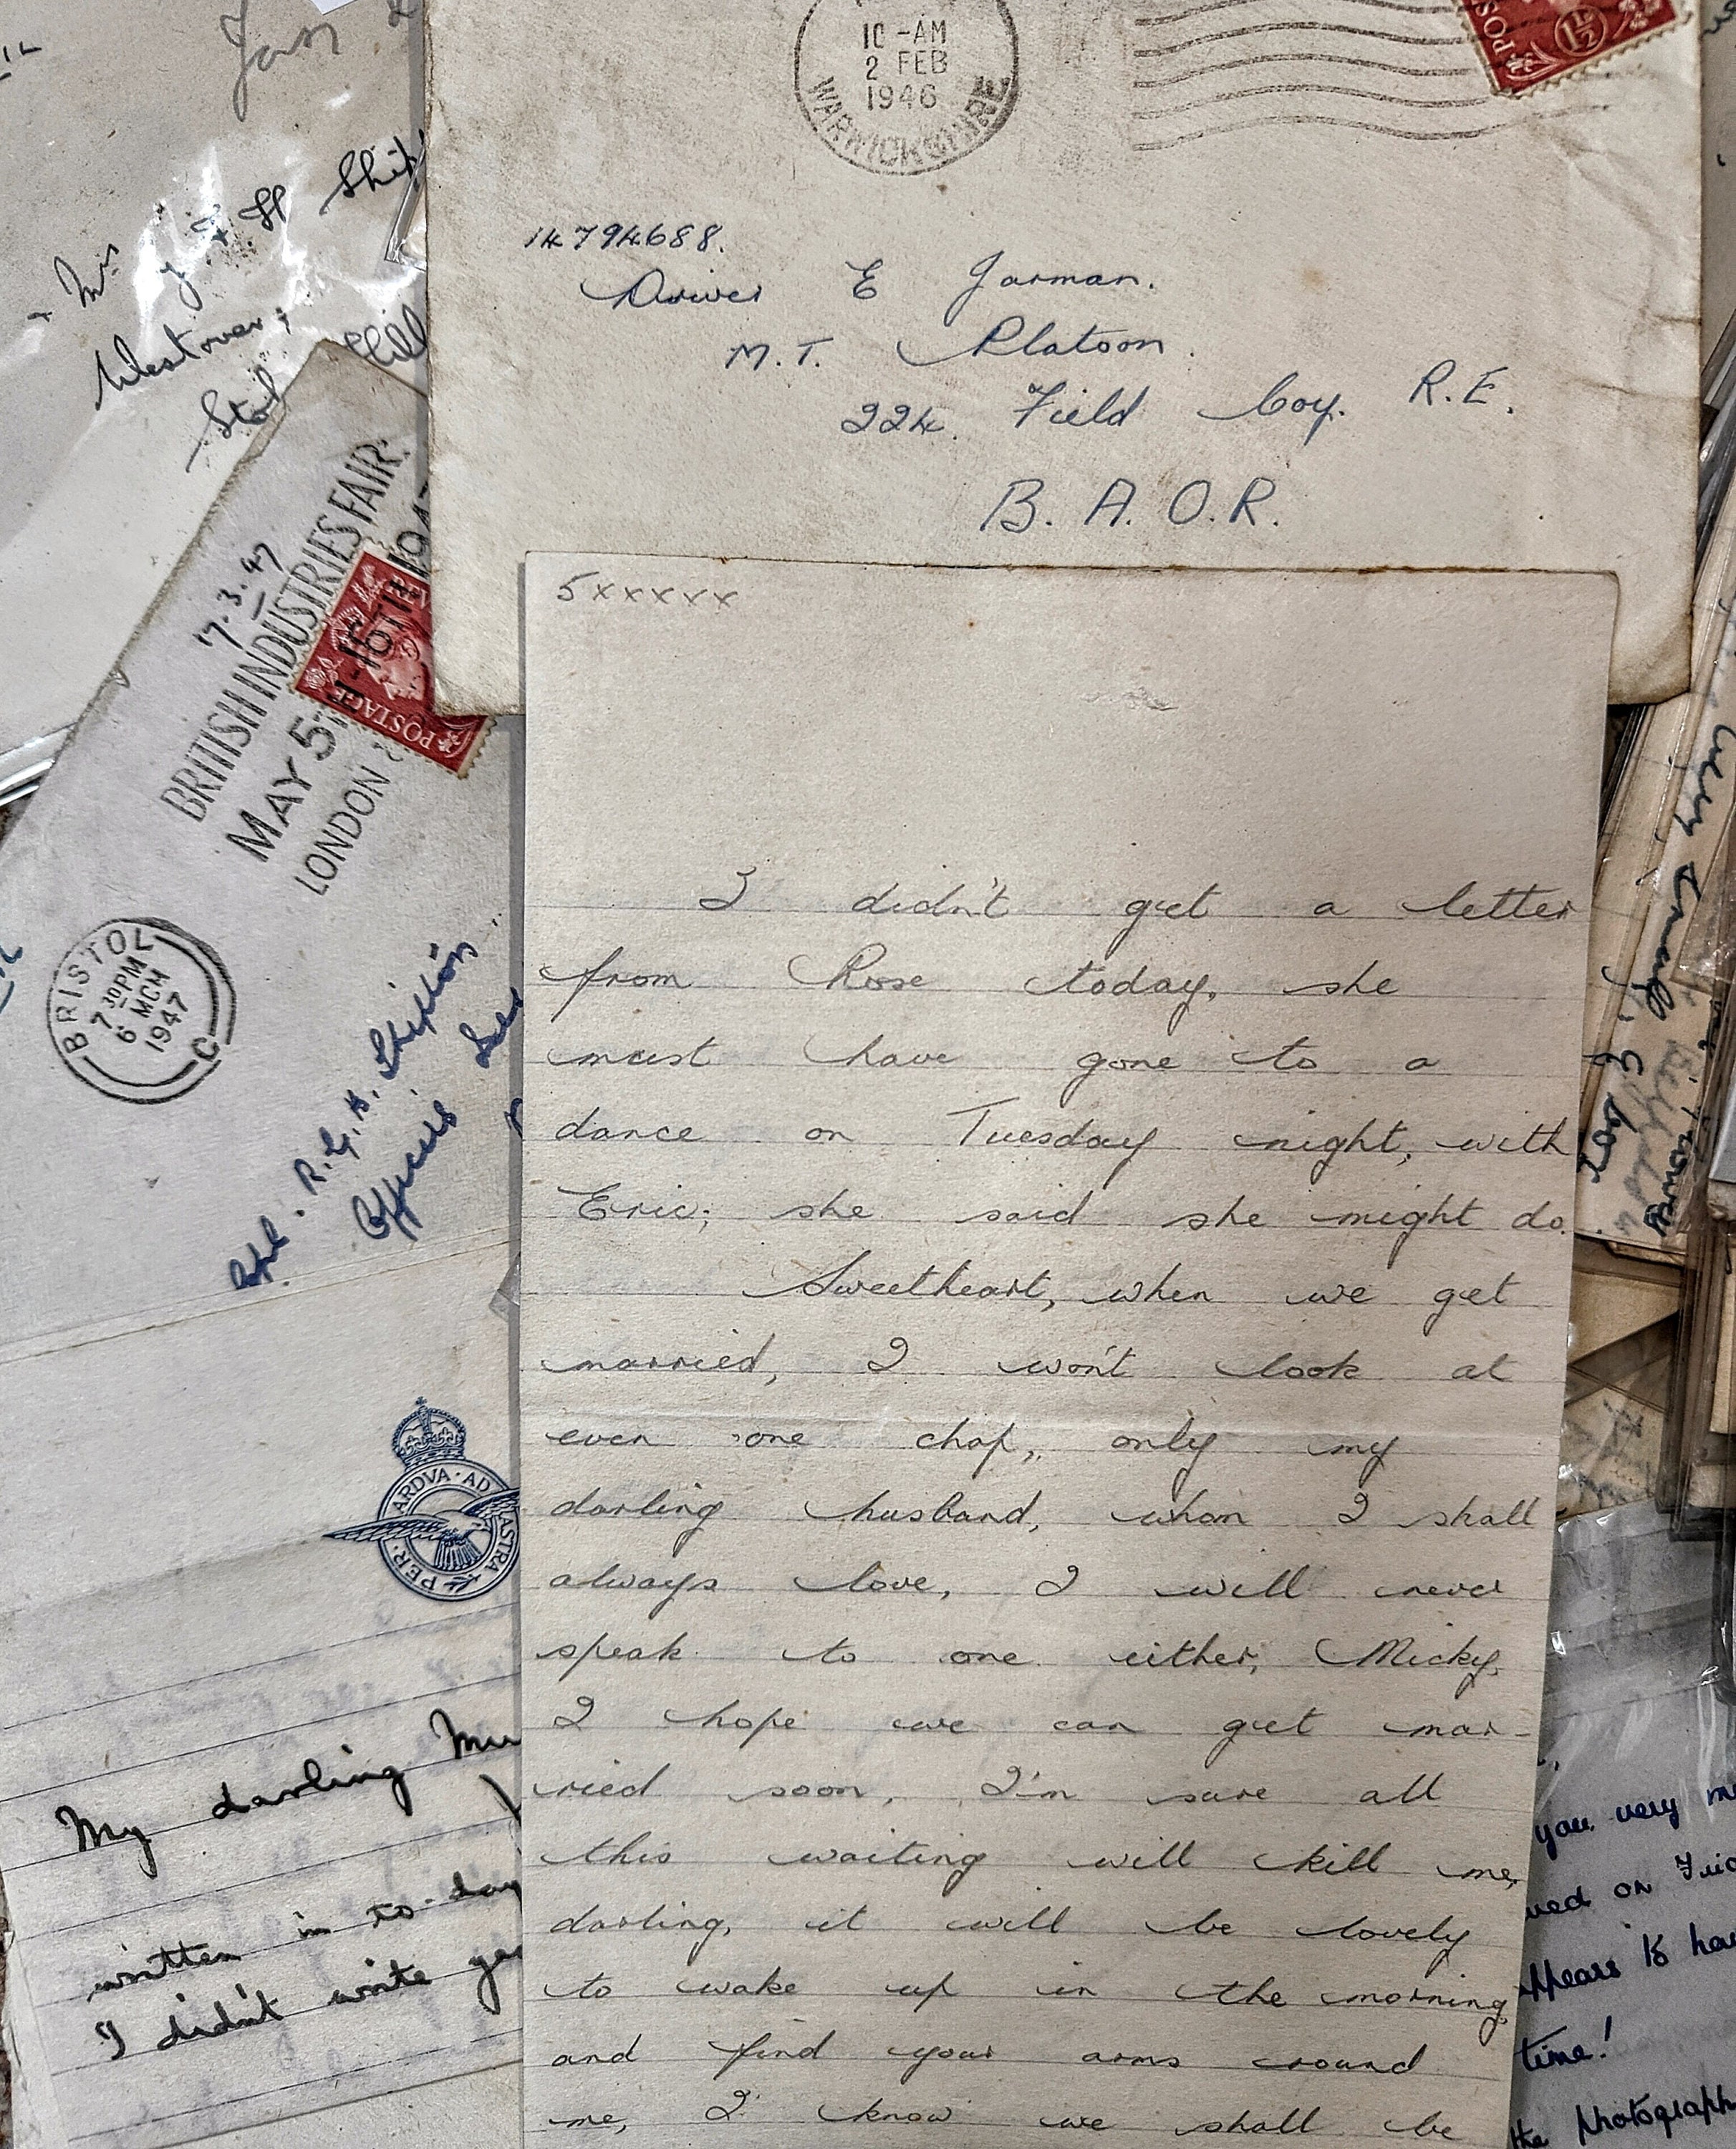 10-AM
2 FEB
1946
WARWICKSHIRE
POS
1½
14794688.
Driver E Jarman.
M.T. Platoon.
224. Field Coy. R.E.
B. A. O. R.
Mrs
Westover,
Hill
17.3.47
BRITISH INDUSTRIES FAIR.
MAY 5
LONDON
POSTAGE
BRISTOL
7 30 PM
6 MCM
1947
C
R. G. H. Shipton
PER · ARDVA · AD ASTRA
My darling
written in to-day
I didn't write
5xxxxx
I didn't get a letter
from Rose today, she
must have gone to a
dance on Tuesday night, with
Eric; she said she might do.
Sweetheart, when we get
married, I won't look at
even one chap, only my
darling husband, whom I shall
always love, I will never
speak to one either, Micky,
I hope we can get mar-
ried soon, I'm sure all
this waiting will kill me,
darling, it will be lovely
to wake up in the morning,
and find your arms around
me, I know we shall be
you very
on
time!
the photograph